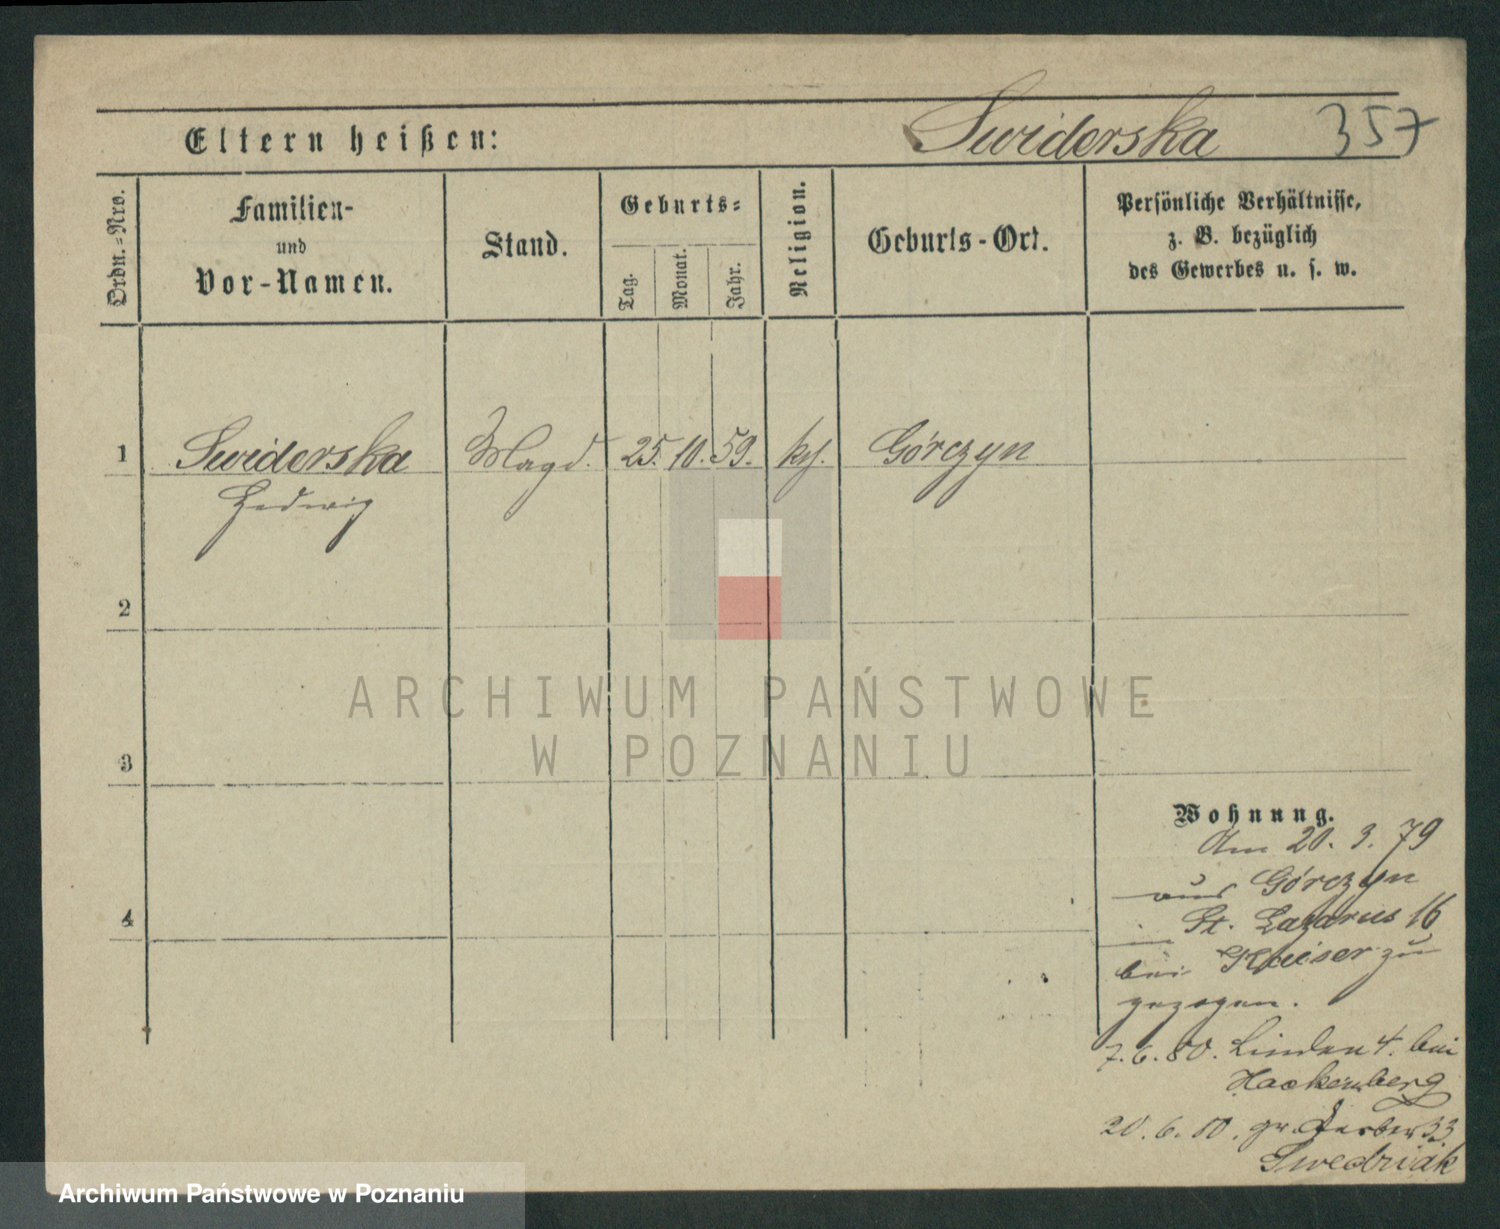 Eltern heißen: Swiderska 357
Ordn.-Nro.
Familien-
und
Vor-Namen.
Stand.
Geburts-
Tag.
Monat.
Jahr.
Religion.
Geburts-Ort.
Persönliche Verhältnisse,
z. B. bezüglich
des Gewerbes u. s. w.
1 Swiderska Magd. 25. 10. 59. kth. Górczyn
Hedwig
2
3
4
ARCHIWUM PAŃSTWOWE
W POZNANIU
Wohnung.
Am 20. 3. 79
aus Górczyn
in St. Lazarus 16
bei Kaiser zu
gezogen.
7. 6. 80. Linden 4. bei
Hackenberg
20. 6. 80. gr. Gerber 33
Swedziak
Archiwum Państwowe w Poznaniu